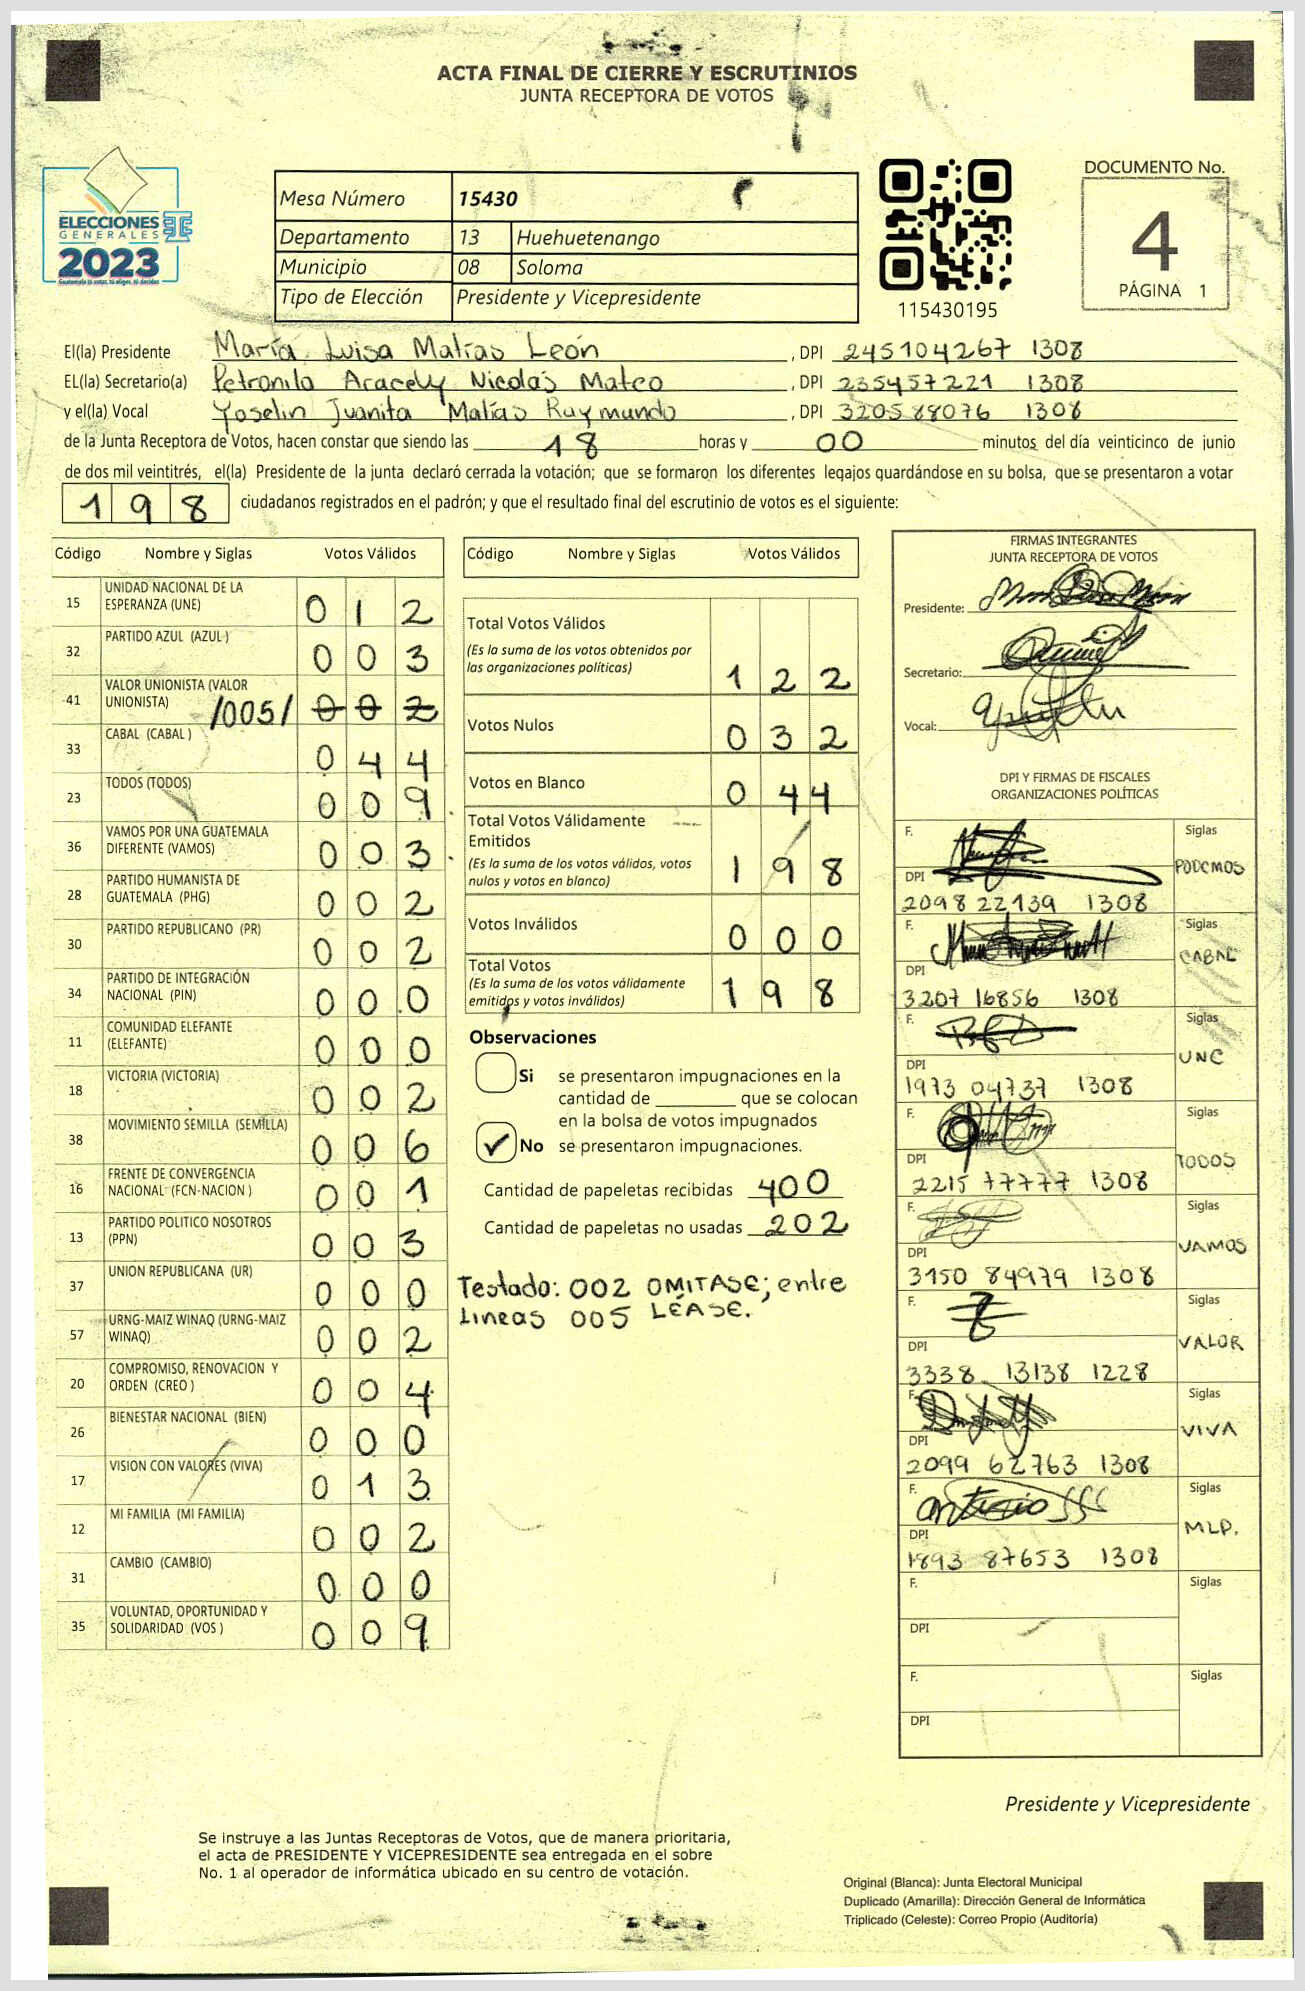 ACTA FINAL DE CIERRE Y ESCRUTINIOS
JUNTA RECEPTORA DE VOTOS
ELECCIONES
GENERALES
2023
Mesa Número 15430
Departamento 13 Huehuetenango
Municipio 08 Soloma
Tipo de Elección Presidente y Vicepresidente
115430195
DOCUMENTO No.
4
PÁGINA 1
El(la) Presidente María Luisa Matías León , DPI 245104267 1308
EL(la) Secretario(a) Petronila Aracely Nicolás Mateo , DPI 235457221 1308
y el(la) Vocal Yoselin Juanita Matías Raymundo , DPI 320588076 1308
de la Junta Receptora de Votos, hacen constar que siendo las 18 horas y 00 minutos del día veinticinco de junio
de dos mil veintitrés, el(la) Presidente de la junta declaró cerrada la votación; que se formaron los diferentes legajos quardándose en su bolsa, que se presentaron a votar
198 ciudadanos registrados en el padrón; y que el resultado final del escrutinio de votos es el siguiente:
Código Nombre y Siglas Votos Válidos
15 UNIDAD NACIONAL DE LA
ESPERANZA (UNE) 0 1 2
32 PARTIDO AZUL (AZUL ) 0 0 3
41 VALOR UNIONISTA (VALOR
UNIONISTA) /005/ 0 0 2
33 CABAL (CABAL ) 0 4 4
23 TODOS (TODOS) 0 0 9
36 VAMOS POR UNA GUATEMALA
DIFERENTE (VAMOS) 0 0 3
28 PARTIDO HUMANISTA DE
GUATEMALA (PHG) 0 0 2
30 PARTIDO REPUBLICANO (PR) 0 0 2
34 PARTIDO DE INTEGRACIÓN
NACIONAL (PIN) 0 0 0
11 COMUNIDAD ELEFANTE
(ELEFANTE) 0 0 0
18 VICTORIA (VICTORIA) 0 0 2
38 MOVIMIENTO SEMILLA (SEMILLA) 0 0 6
16 FRENTE DE CONVERGENCIA
NACIONAL (FCN-NACION ) 0 0 1
13 PARTIDO POLITICO NOSOTROS
(PPN) 0 0 3
37 UNION REPUBLICANA (UR) 0 0 0
57 URNG-MAIZ WINAQ (URNG-MAIZ
WINAQ) 0 0 2
20 COMPROMISO, RENOVACION Y
ORDEN (CREO ) 0 0 4
26 BIENESTAR NACIONAL (BIEN) 0 0 0
17 VISION CON VALORES (VIVA) 0 1 3
12 MI FAMILIA (MI FAMILIA) 0 0 2
31 CAMBIO (CAMBIO) 0 0 0
35 VOLUNTAD, OPORTUNIDAD Y
SOLIDARIDAD (VOS ) 0 0 9
Código Nombre y Siglas Votos Válidos
Total Votos Válidos
(Es la suma de los votos obtenidos por
las organizaciones políticas) 1 2 2
Votos Nulos 0 3 2
Votos en Blanco 0 4 4
Total Votos Válidamente
Emitidos
(Es la suma de los votos válidos, votos
nulos y votos en blanco) 1 9 8
Votos Inválidos 0 0 0
Total Votos
(Es la suma de los votos válidamente
emitidos y votos inválidos) 1 9 8
Observaciones
Si se presentaron impugnaciones en la
cantidad de ________ que se colocan
en la bolsa de votos impugnados
✓ No se presentaron impugnaciones.
Cantidad de papeletas recibidas 400
Cantidad de papeletas no usadas 202
Testado: 002 OMITASE; entre
Lineas 005 LÉASE.
FIRMAS INTEGRANTES
JUNTA RECEPTORA DE VOTOS
Presidente:
Secretario:
Vocal:
DPI Y FIRMAS DE FISCALES
ORGANIZACIONES POLÍTICAS
F. Siglas
PODEMOS
DPI
2098 22139 1308
F. Siglas
CABAL
DPI
3207 16856 1308
F. Siglas
UNE
DPI
1973 04737 1308
F. Siglas
TODOS
DPI
2215 77777 1308
F. Siglas
VAMOS
DPI
3150 84979 1308
F. Siglas
VALOR
DPI
3338 13138 1228
F. Siglas
VIVA
DPI
2099 62763 1308
F. Siglas
MLP.
DPI
1893 87653 1308
F. Siglas
DPI
F. Siglas
DPI
Presidente y Vicepresidente
Se instruye a las Juntas Receptoras de Votos, que de manera prioritaria,
el acta de PRESIDENTE Y VICEPRESIDENTE sea entregada en el sobre
No. 1 al operador de informática ubicado en su centro de votación.
Original (Blanca): Junta Electoral Municipal
Duplicado (Amarilla): Dirección General de Informática
Triplicado (Celeste): Correo Propio (Auditoría)